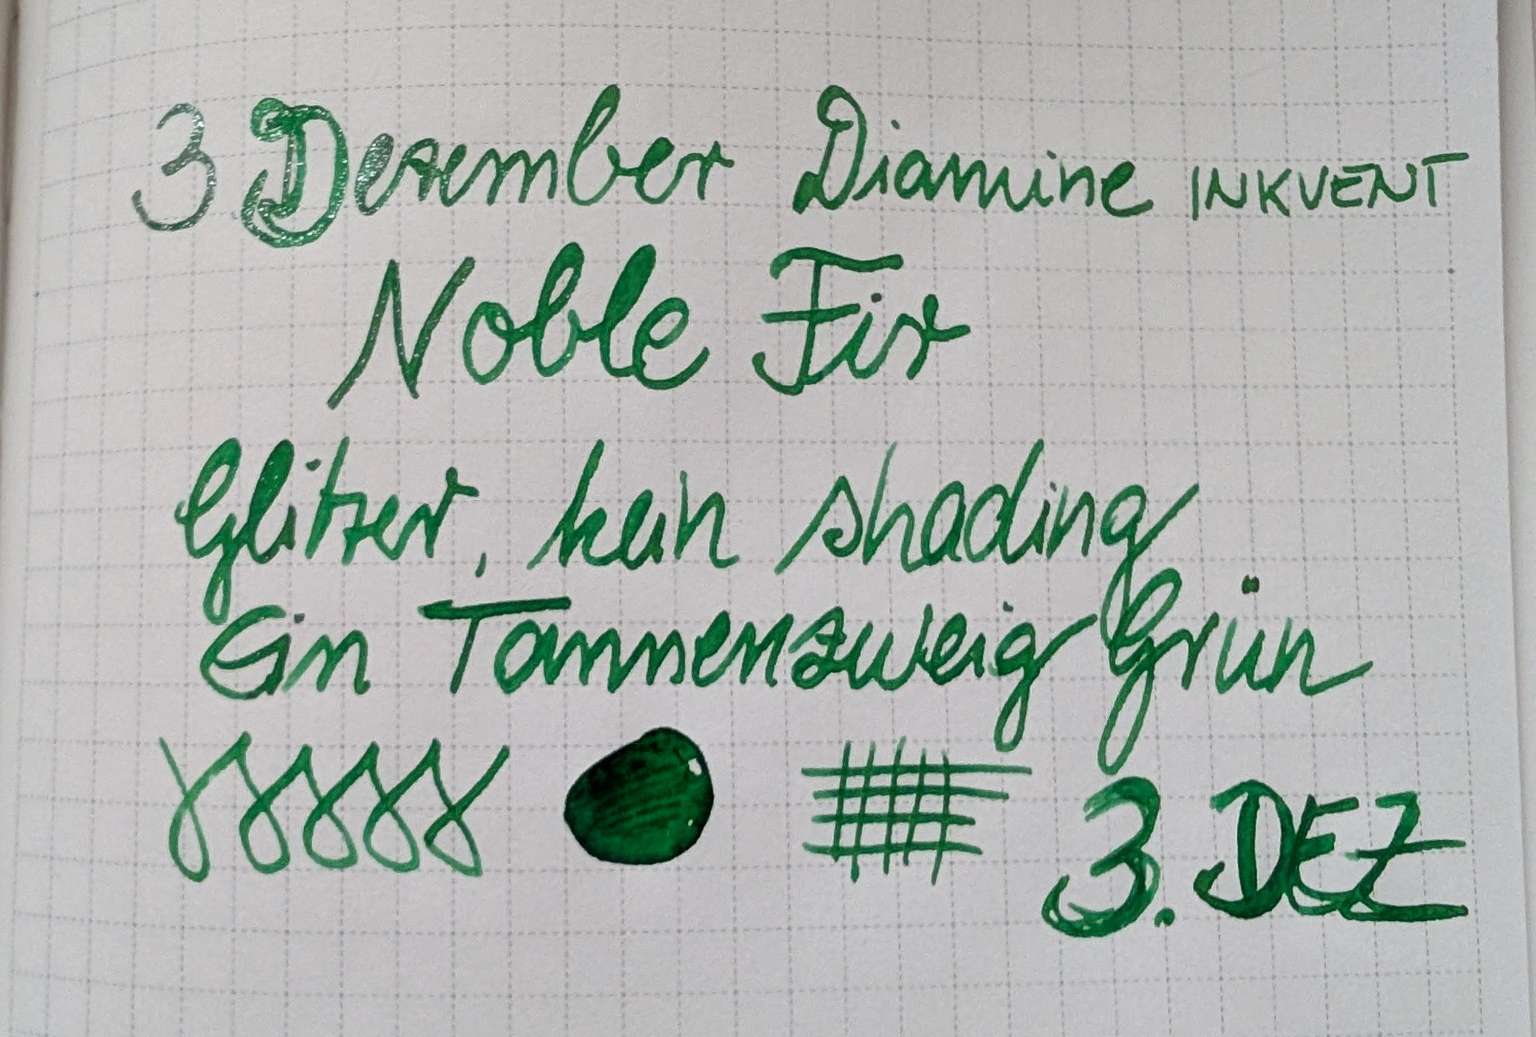 3 Dezember Diamine INKVENT
Noble Fir
Glitzer, kein shading
Ein Tannenzweig Grün
3. DEZ